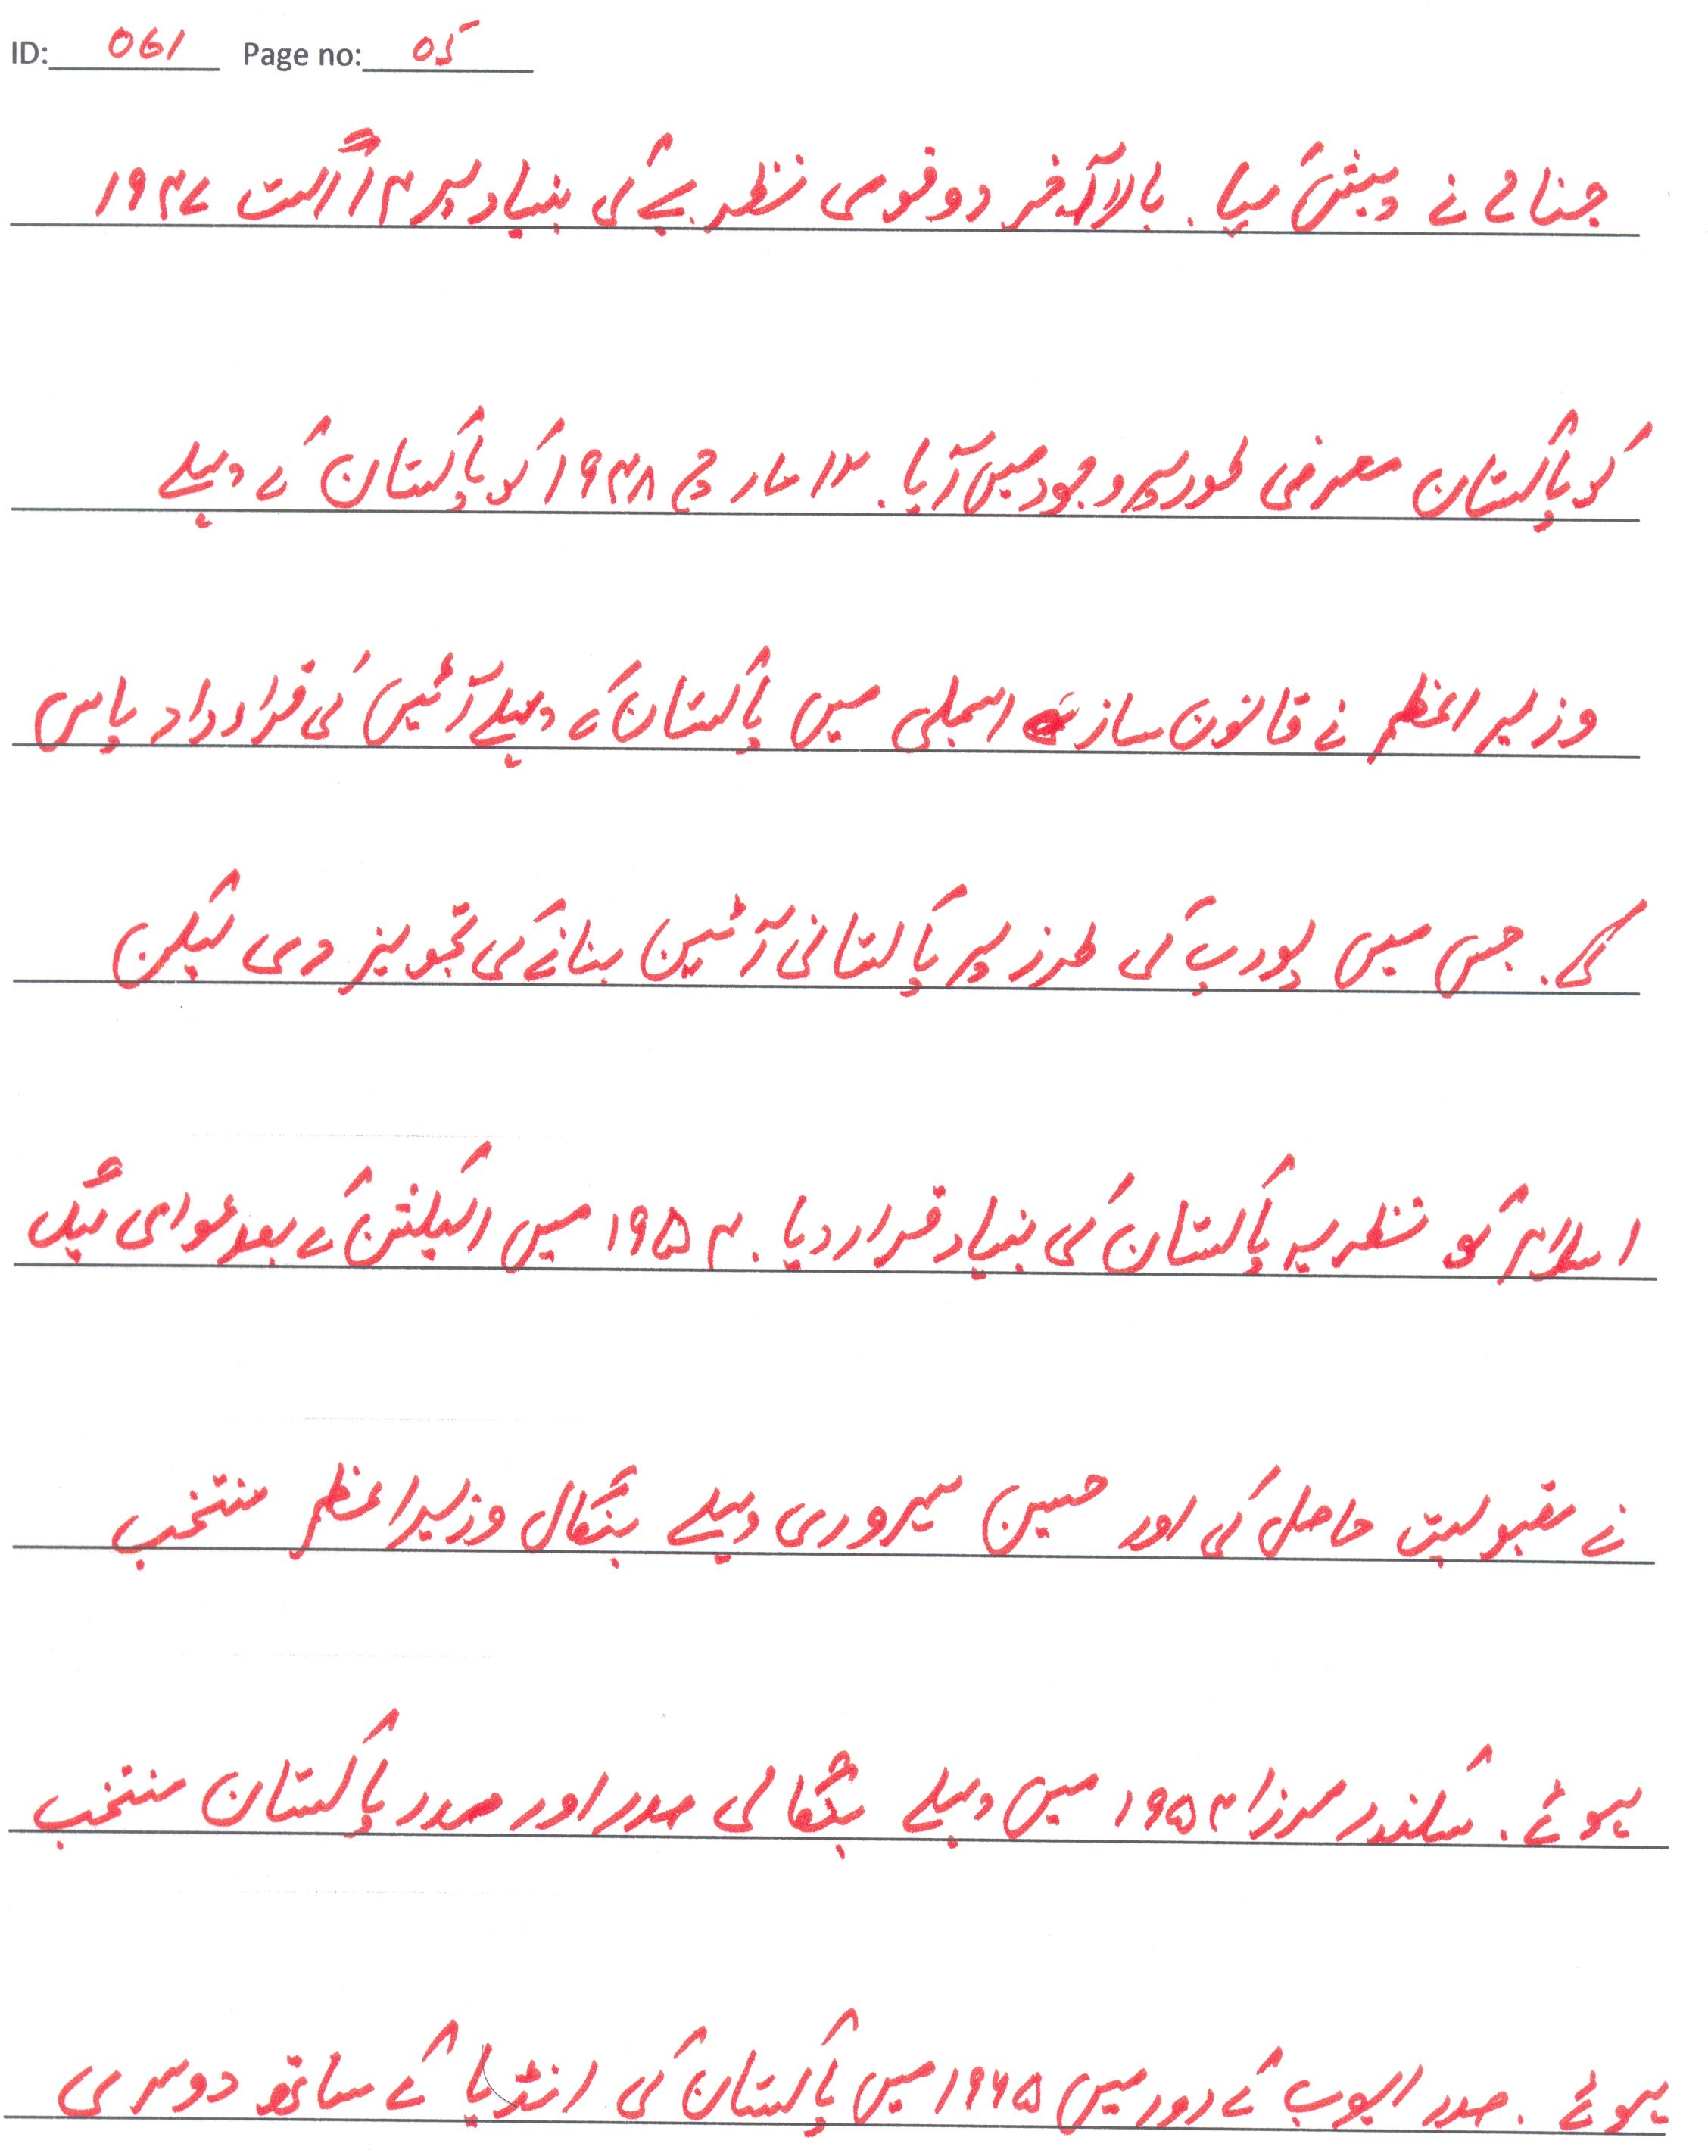 ID: 061 Page no: 05
جناح نے پیش کیا. بالاآخر دو قومی نظریے کی بنیاد پر ۱۴ اگست ۱۹۴۷
کو پاکستان معرض طور پر وجود میں آیا. ۱۲ مارچ ۱۹۴۸ کو پاکستان کے پہلے
وزیر اعظم نے قانون ساز اسمبلی میں پاکستان کے پہلے آئین کی قرارداد پاس
کی. جس میں یورپ کی طرز پر پاکستانی آئین بنانے کی تجویز دی لیکن
اسلام کو نظریہ پاکستان کی بنیاد قرار دیا. ۱۹۵۴ میں الیکشن کے بعد عوامی لیگ
نے مقبولیت حاصل کی اور حسین سہروردی پہلے بنگال وزیر اعظم منتخب
ہوئے. سکندر مرزا ۱۹۵۴ میں پہلے بنگالی صدر اور صدر پاکستان منتخب
ہوئے. صدر ایوب کے دور میں ۱۹۶۵ میں پاکستان کی انڈیا کے ساتھ دوسری